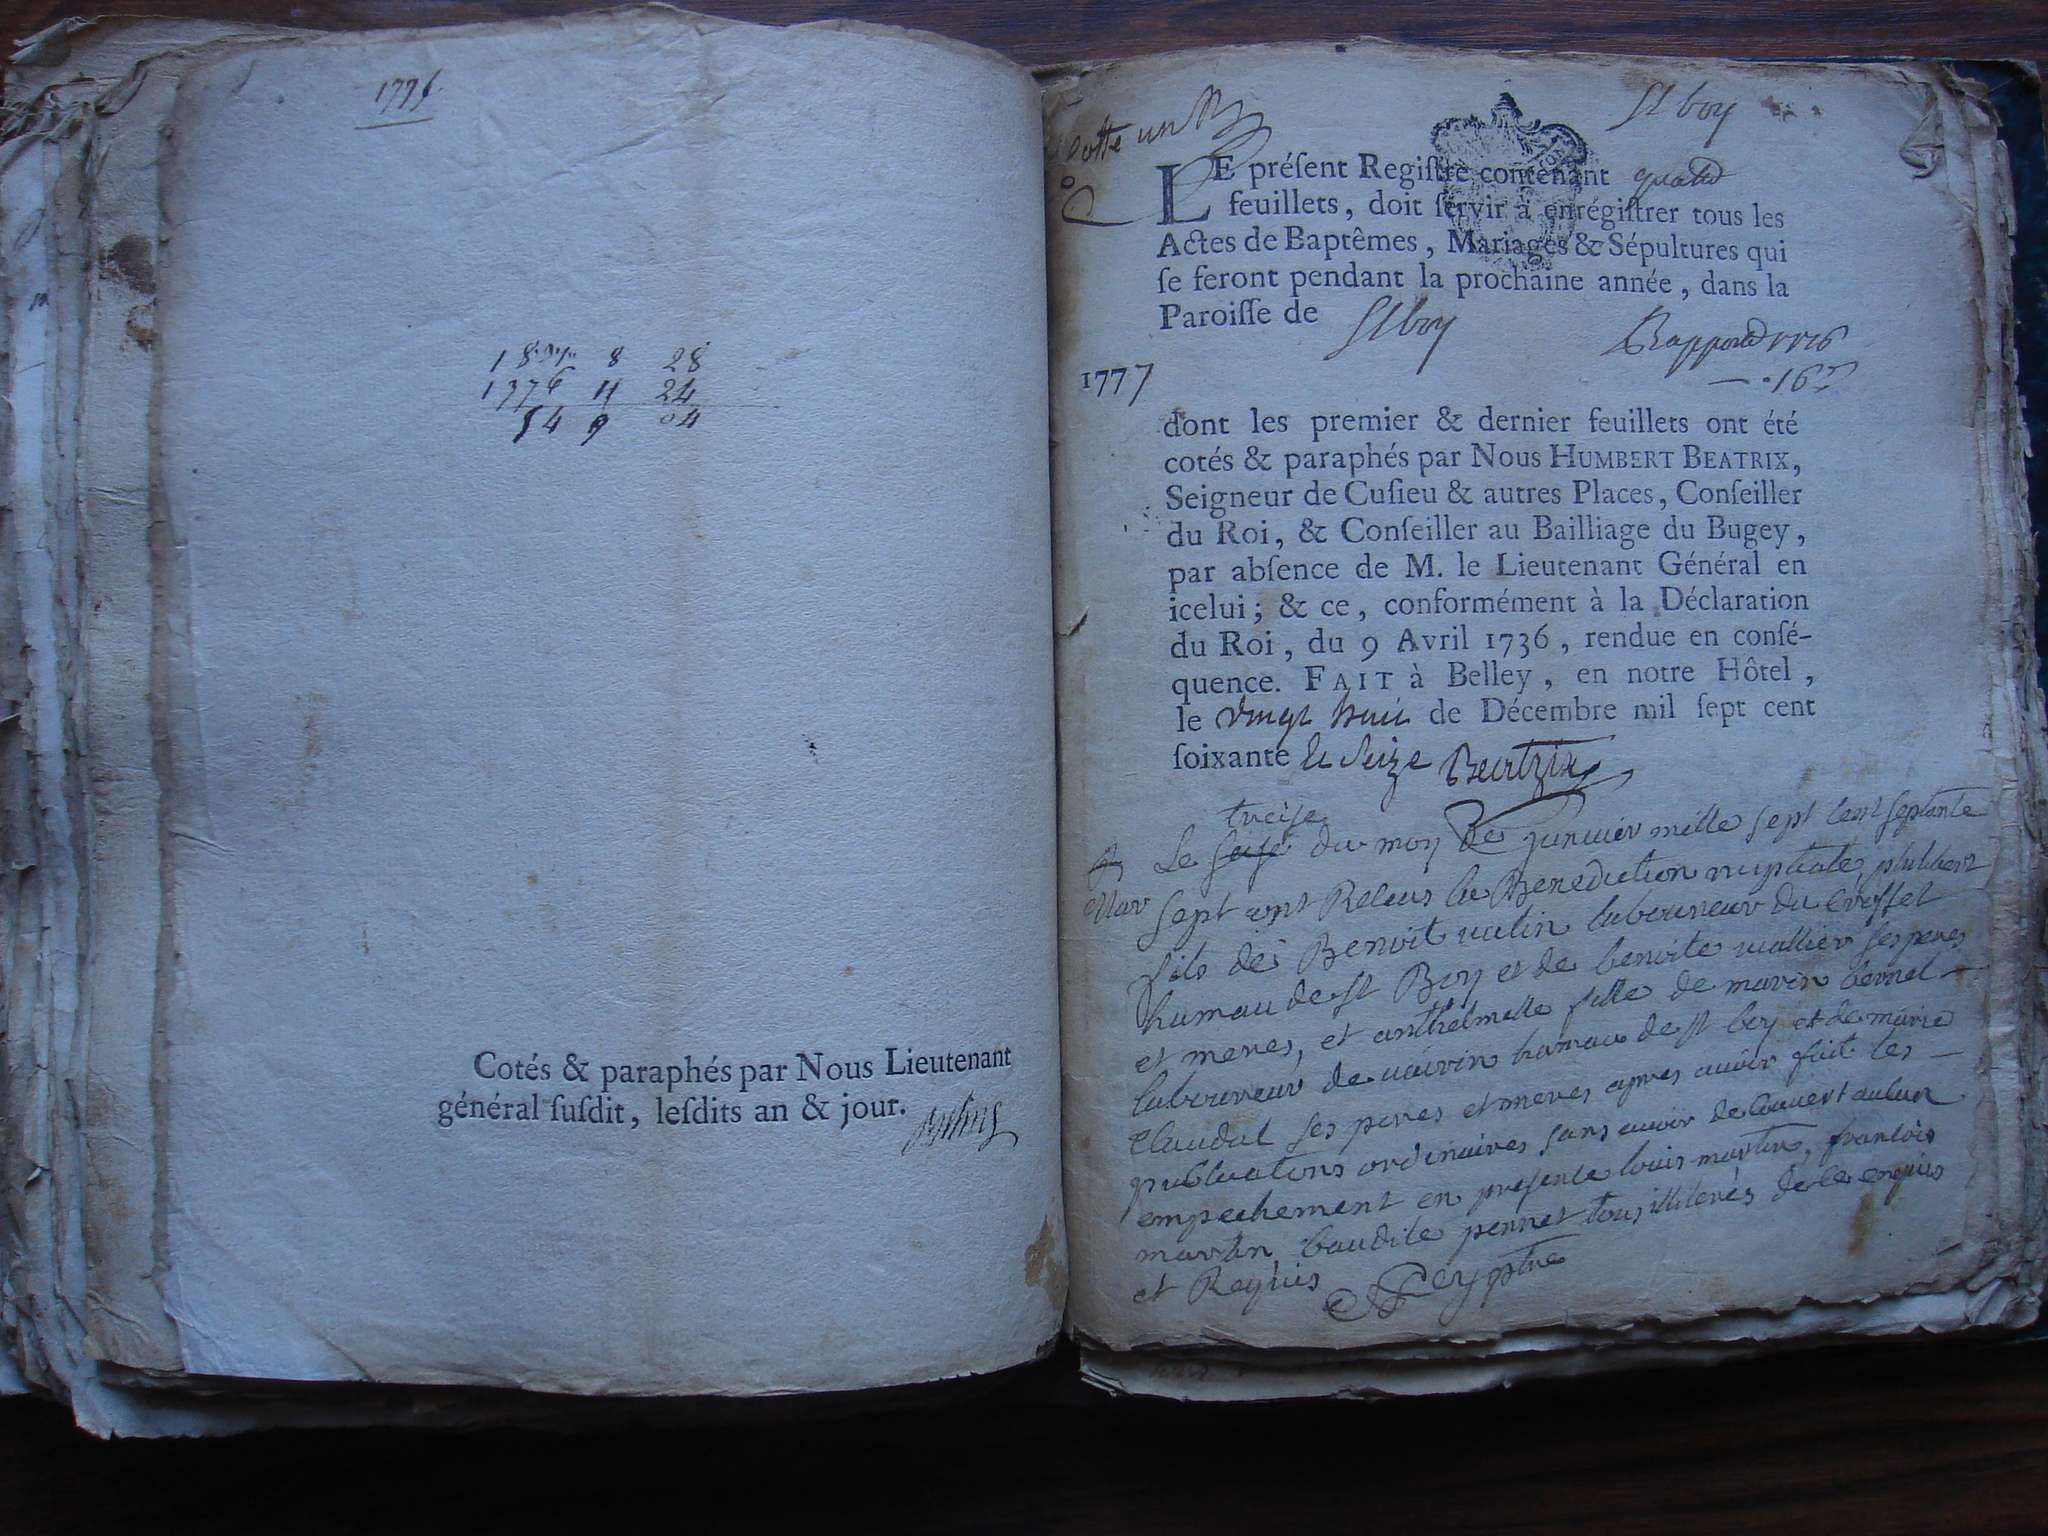 1776.
8 28
1776 11 24
54 9 04
Cotés & paraphés par Nous Lieutenant
général ſuſdit, leſdits an & jour.
Cotte un
St boy
LE préſent Regiſtre contenant
feuillets, doit ſervir à enrégiſtrer tous les
Actes de Baptêmes, Mariages & Sépultures qui
ſe feront pendant la prochaine année, dans la
Paroiſſe de St boy
1777
dont les premier & dernier feuillets ont été
cotés & paraphés par Nous HUMBERT BEATRIX,
Seigneur de Cuſieu & autres Places, Conſeiller
du Roi, & Conſeiller au Bailliage du Bugey,
par abſence de M. le Lieutenant Général en
icelui; & ce, conformément à la Déclaration
du Roi, du 9 Avril 1736, rendue en conſé-
quence. FAIT à Belley, en notre Hôtel,
le vingt huit de Décembre mil ſept cent
ſoixante et seize Beatrix
treise
Mar
Le seise du moy de janvier mille sept cent septante
sept ont Recus la Benediction nuptiale philibert
fils de Benoit vatin laboureur du Crosset
hamau de st Boy et de benoite vallier ses peres
et meres, et anthelmelle fille de marin bernel
laboureur de vairin hamau de st boy et de marie
Claudal ses peres et meres apres avoir fait les
publications ordinaires sans avoir decouvert aucun
empechement en presence louis martin, francois
martin baudile pernet tous illiterés de ce enquis
et Requis